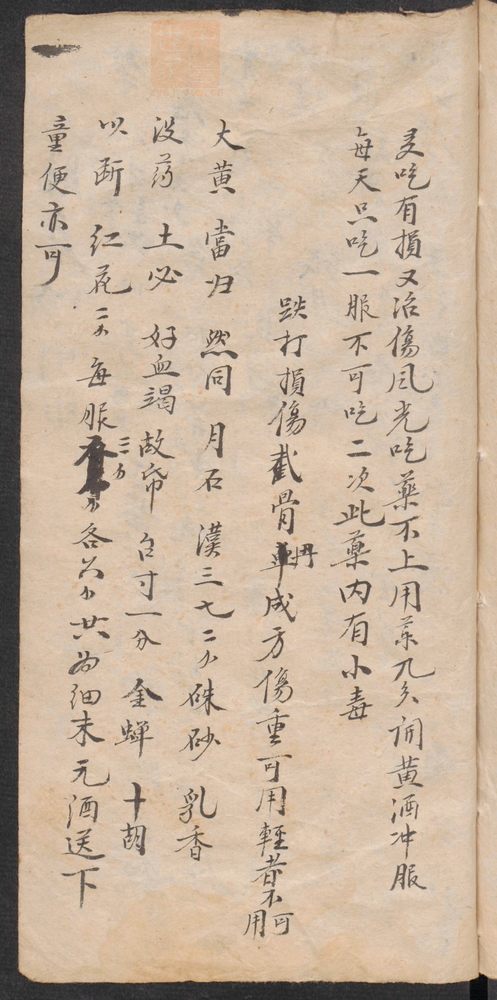 多吃有損又治傷風光吃藥不上用茶兀久調黃酒冲服
每天只吃一服不可吃二次此藥內有小毒
跌打損傷截骨丹成方傷重可用輕者不可用
大黃 當归 然同 月石 漢三七二 硃砂 乳香
没药 土必 好血竭 故帋 台寸一分 金蝉 十胡
以断 紅花三 每服三 各 共为细末元酒送下
童便亦可